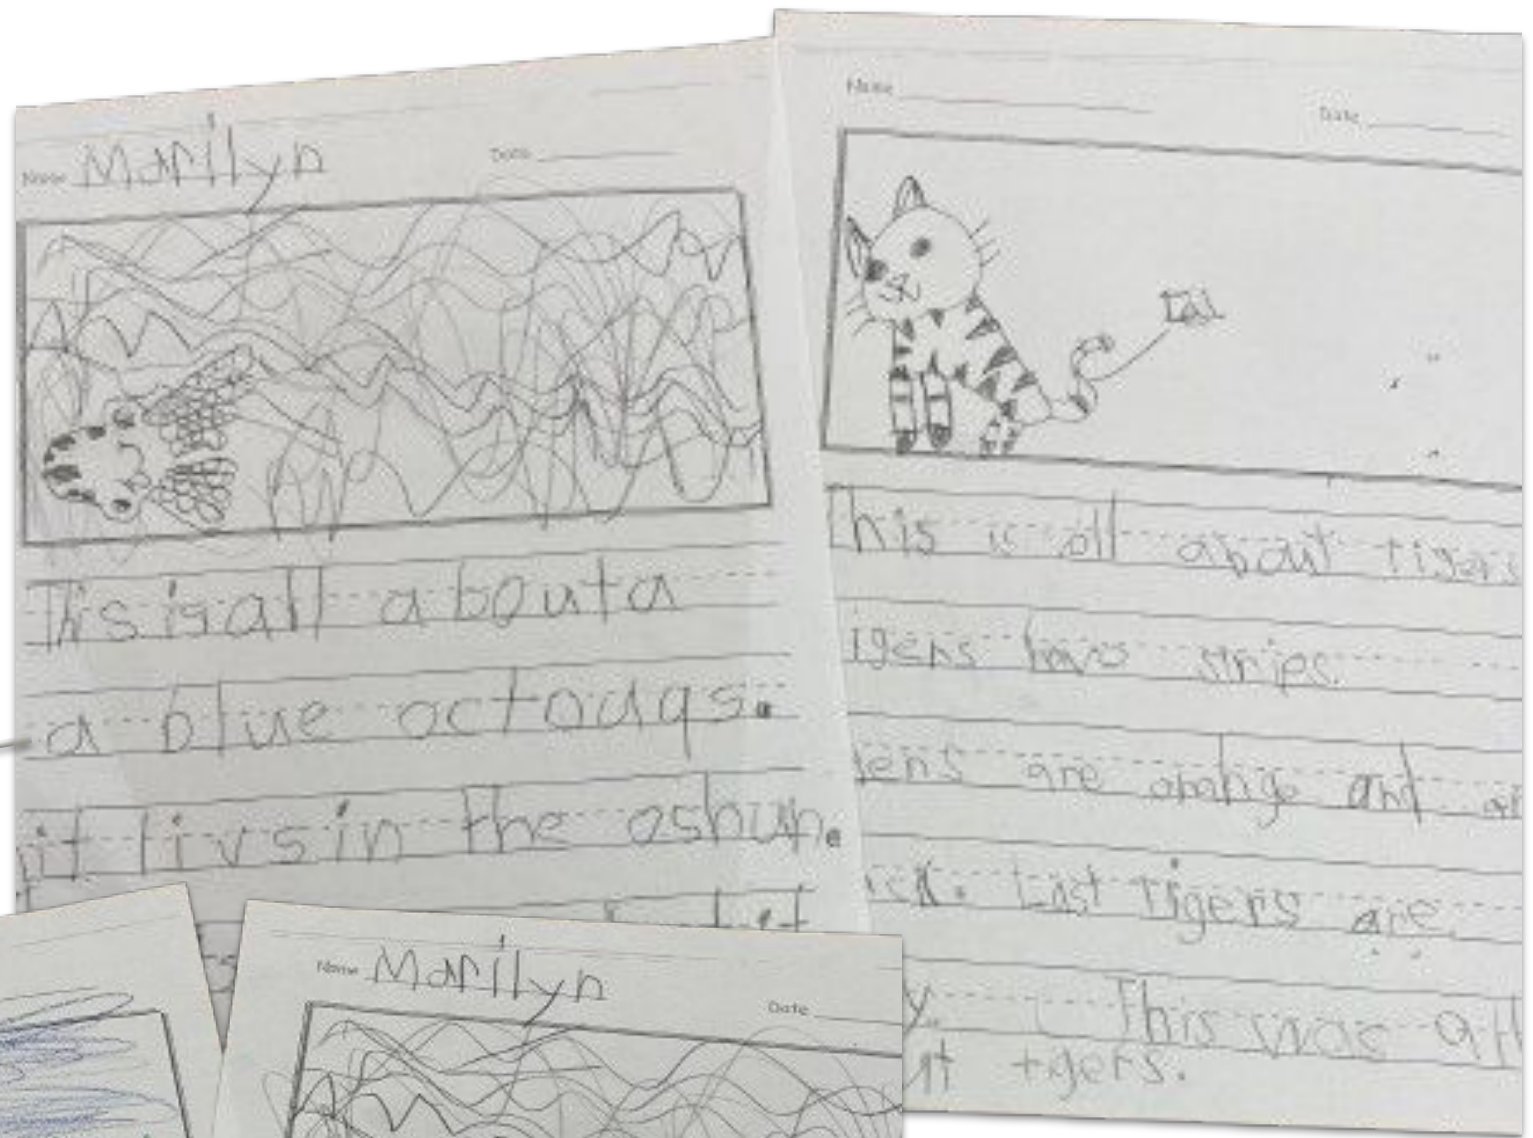 Name Marilyn Date
This is all about a
a blue octouqs.
it livs in the oshun.
Name Date
Tail
This is all about tigers
igers have strips.
are orange and
Last Tigers are
y. This was all
ut tigers.
Name Marilyn Date